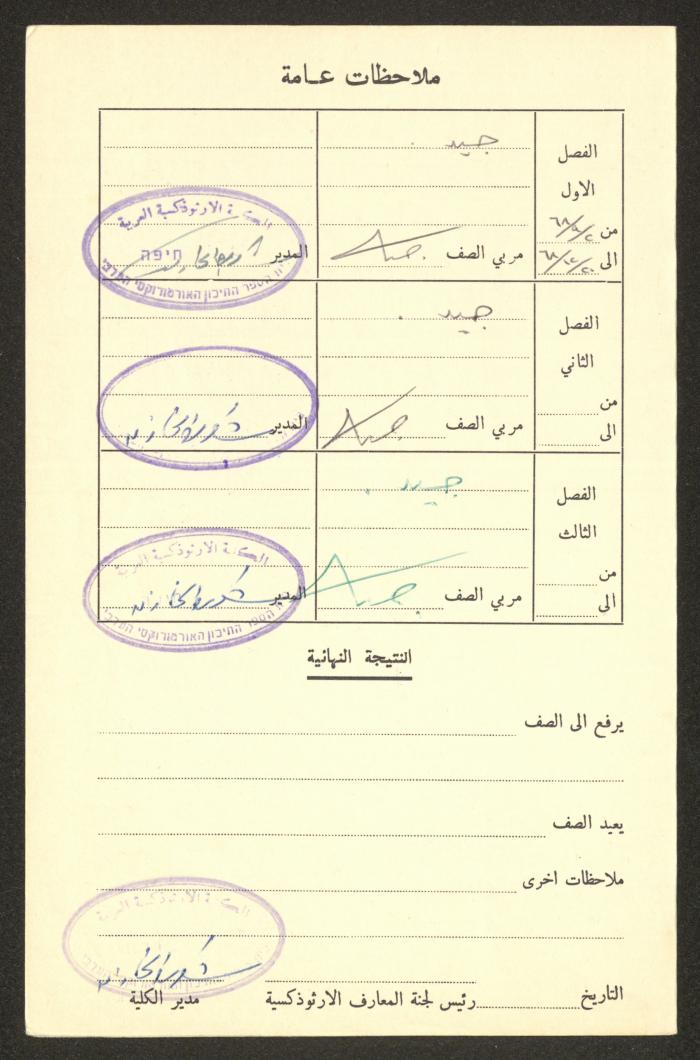 ملاحظات عـامة
الفصل
جيد .
الاول
من ٦٨/٩/٢
الى ٦٨/١٢/٢٠
مربي الصف
المدير
الكلية الارثوذكسية العربية
חיפה
בית הספר התיכון האורטודוקסי הערבי
الفصل
جيد .
الثاني
من
الى
مربي الصف
المدير
الفصل
جيد .
الثالث
من
الى
مربي الصف
المدير
الكلية الارثوذكسية العربية
בית הספר התיכון האורטודוקסי הערבי
النتيجة النهائية
يرفع الى الصف
يعيد الصف
ملاحظات اخرى
الكلية الارثوذكسية العربية
التاريخ
رئيس لجنة المعارف الارثوذكسية
مدير الكلية